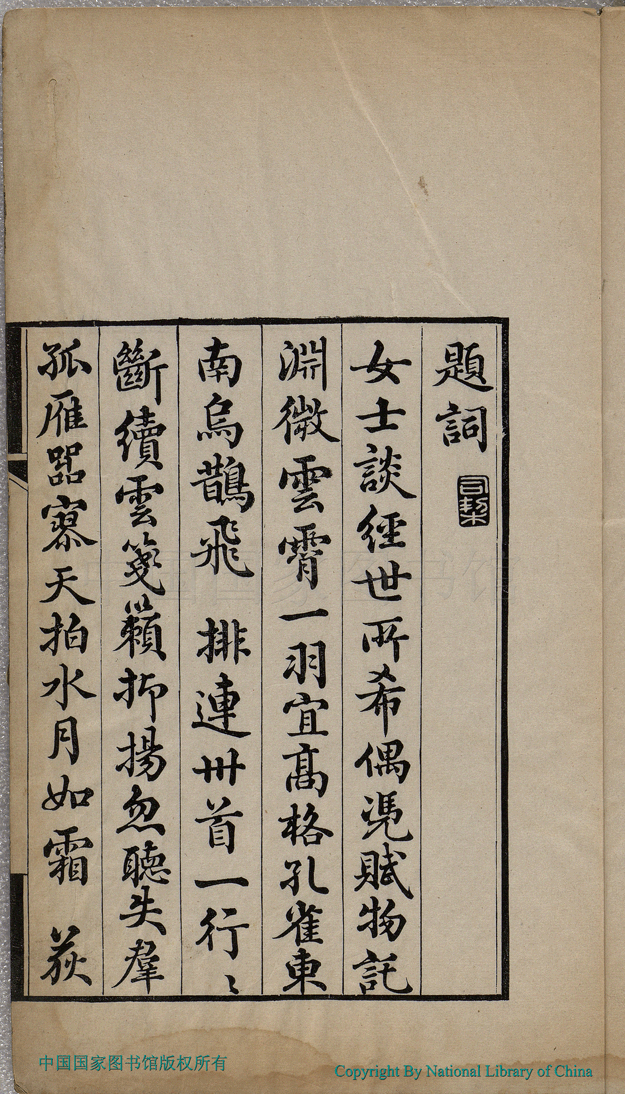 題詞
女士談經世所希偶憑賦物託
淵微雲霄一羽宜高格孔雀東
南烏鵲飛 排連卅首一行〻
斷續雲箋籟抑揚忽聽失羣
孤雁噐寥天拍水月如霜 荻
中国国家图书馆版权所有
Copyright By National Library of China